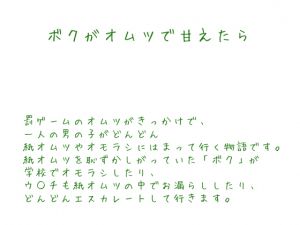 ボクがオムツで甘えたら
罰ゲームのオムツがきっかけで、
一人の男の子がどんどん
紙オムツやオモラシにはまって行く物語です。
紙オムツを恥ずかしがっていた「ボク」が
学校でオモラシしたり、
ウ〇チも紙オムツの中でお漏らししたり、
どんどんエスカレートして行きます。